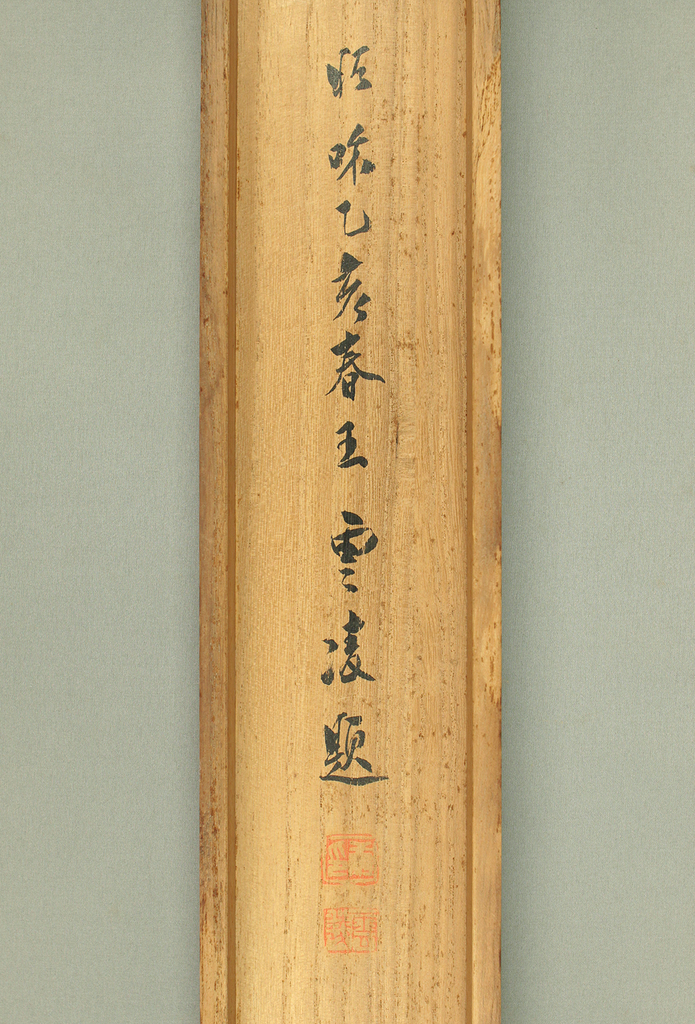 昭咊乙亥春王雲凌題